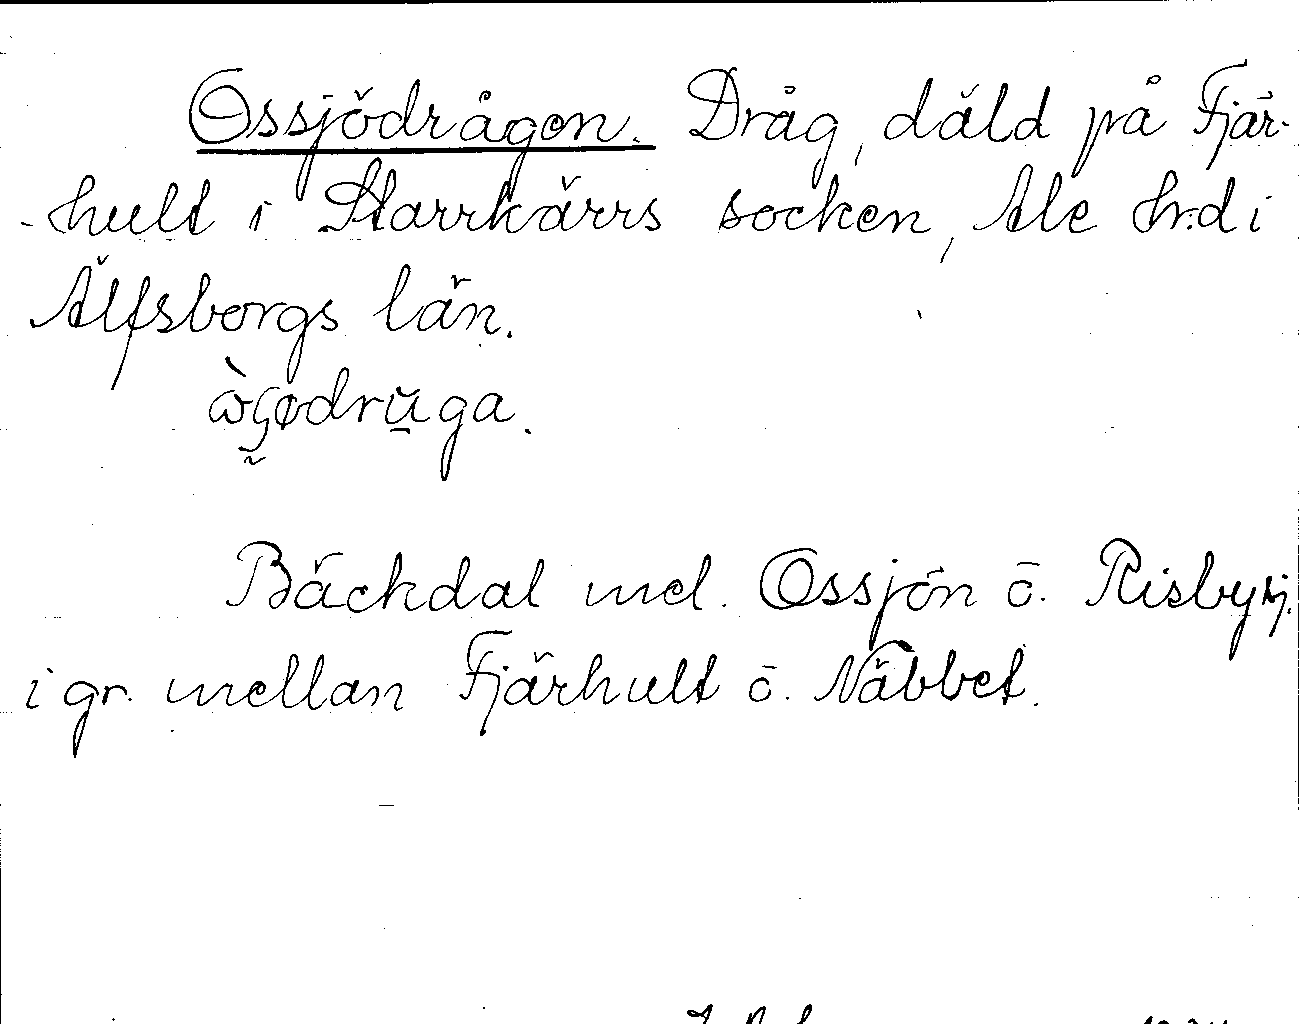 Ossjödrågen. Dråg, däld på Fjär-
-hult i Starrkärrs socken, Ale hrd i
Älfsborgs län.
Bäckdal mel. Ossjön o. Risbysj.
i gr. mellan Fjärhult o. Näbbet.